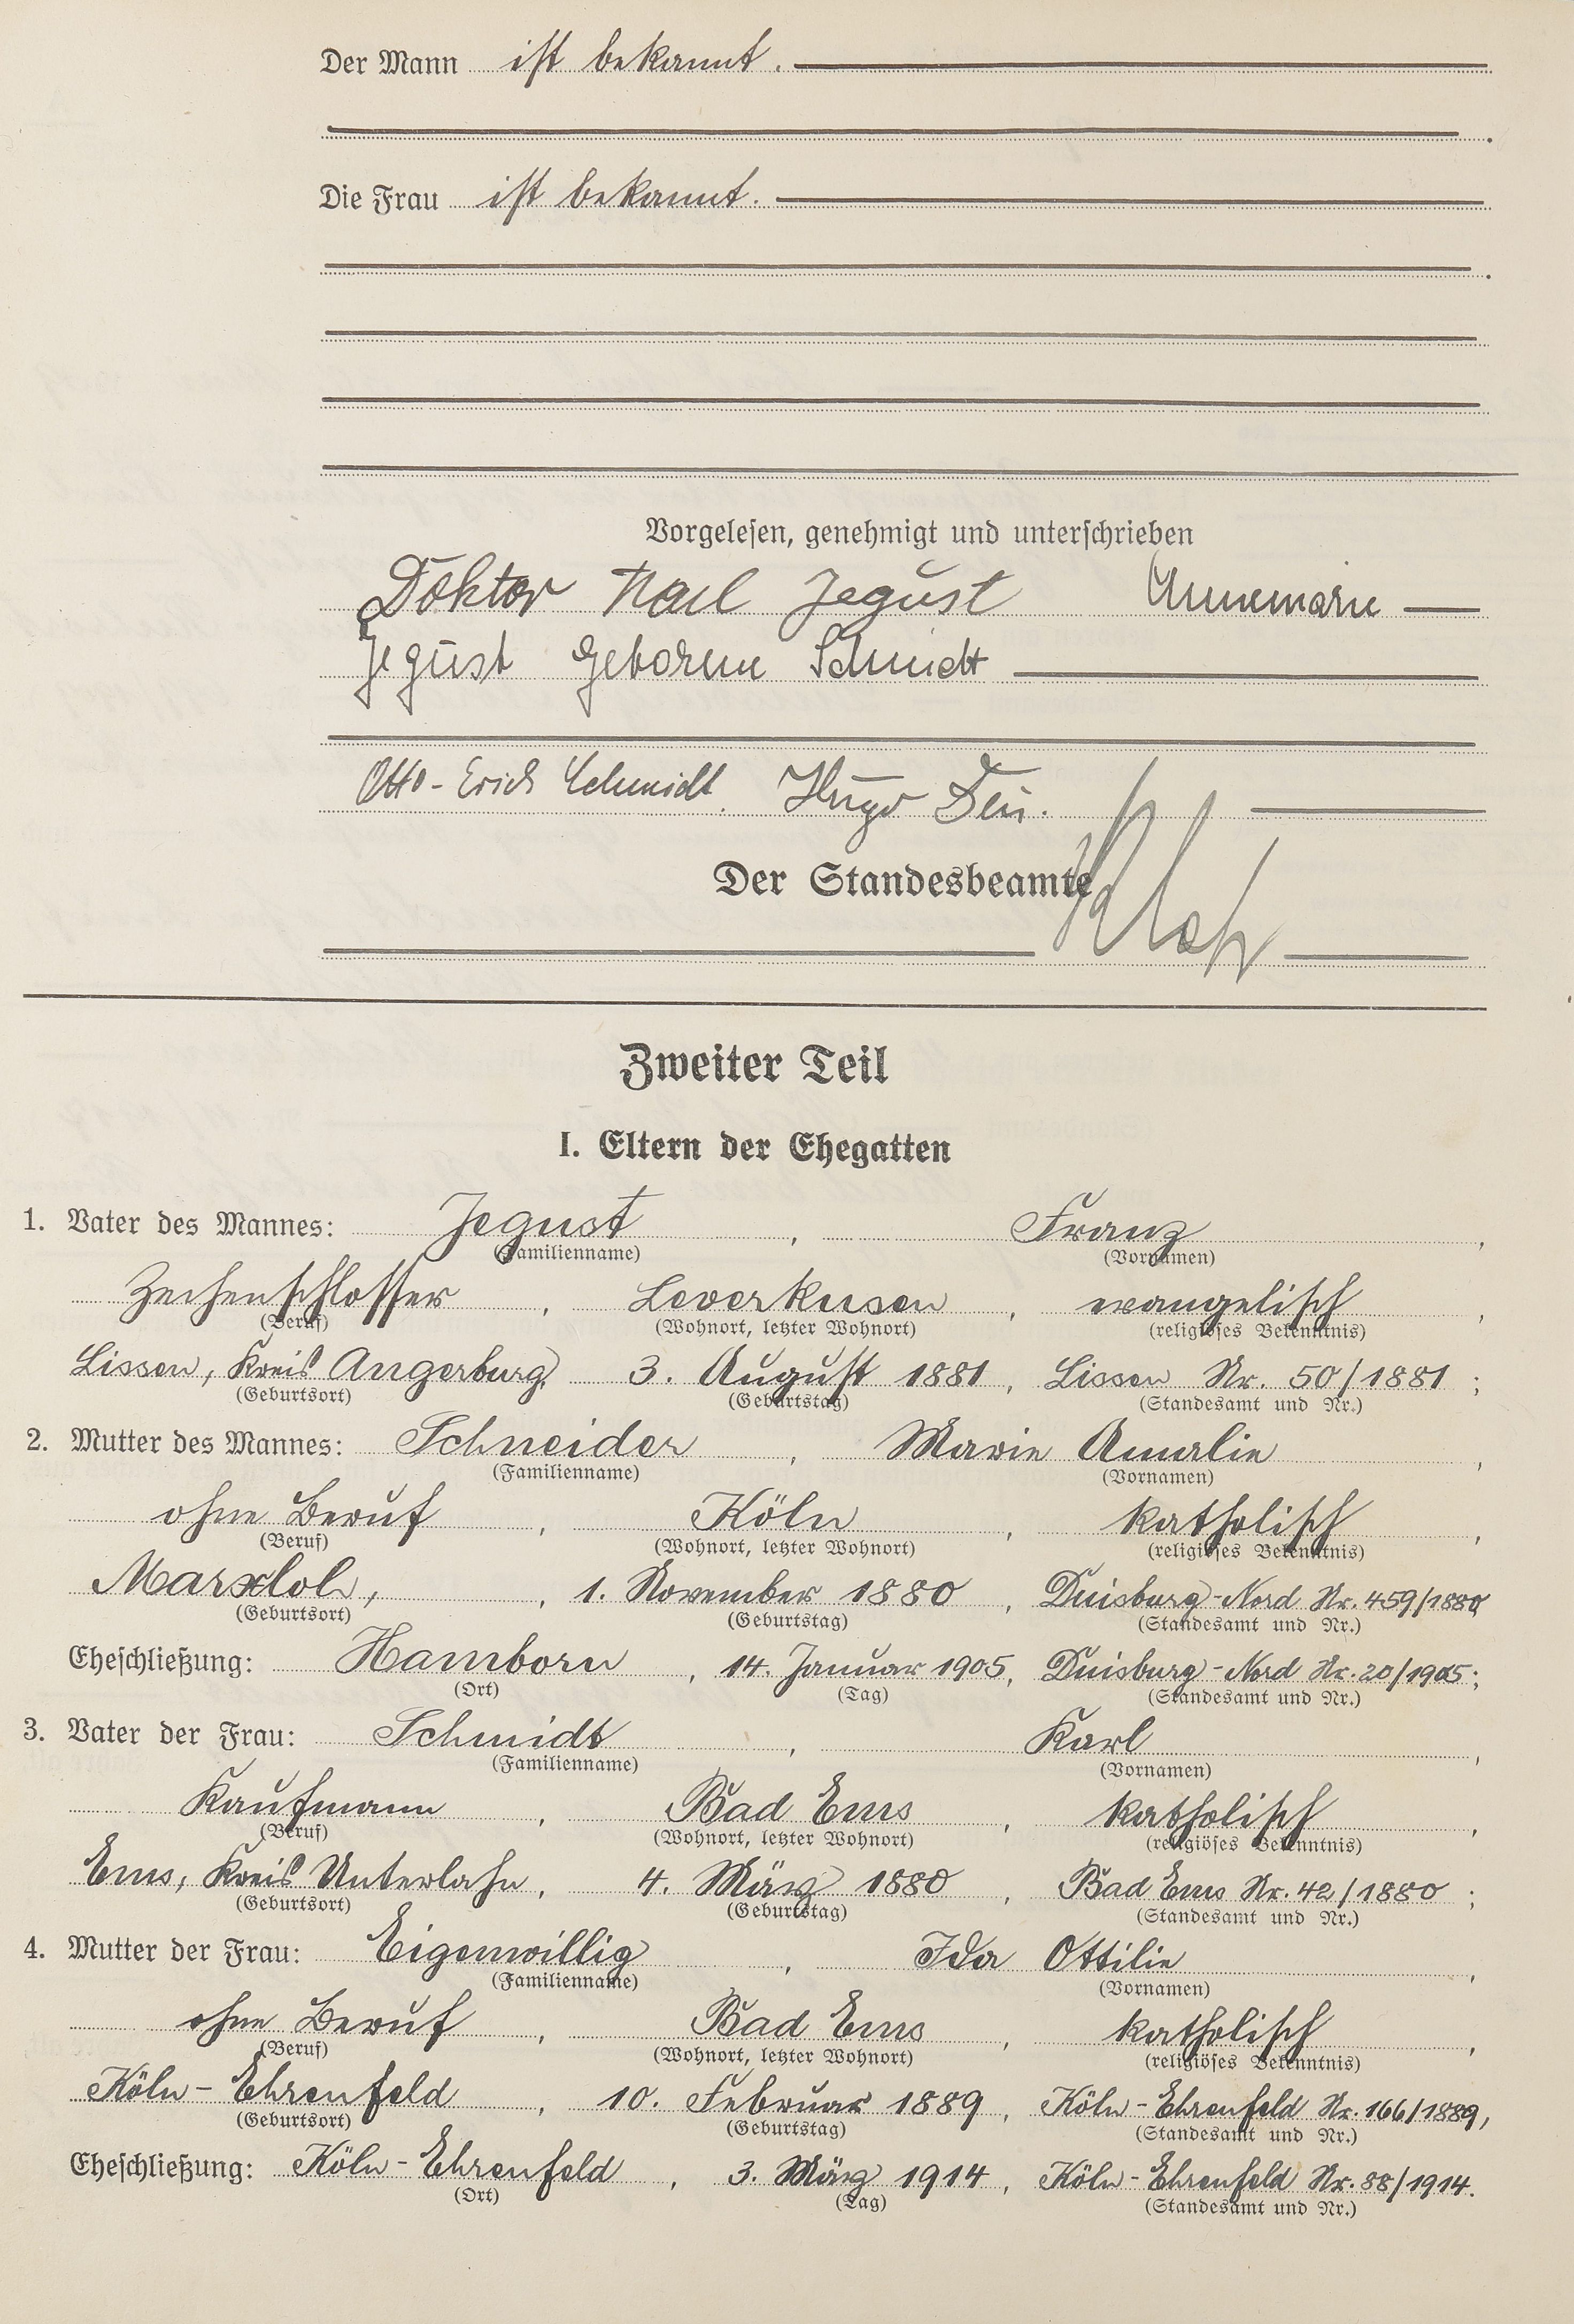 Der Mann ist bekannt.
Die Frau ist bekannt.
Vorgelesen, genehmigt und unterschrieben
Doktor Karl Jegust Annemarie
Jegust geborene Schmidt
Otto-Erich Schmidt Hugo
Der Standesbeamte
Zweiter Teil
I. Eltern der Ehegatten
1. Vater des Mannes: Jegust, Franz,
(Familienname) (Vornamen)
Zechenschlosser, Leverkusen, evangelisch,
(Beruf) (Wohnort, letzter Wohnort) (religiöses Bekenntnis)
Lissen, Kreis Angerburg, 3. August 1881, Lissen Nr. 50/1881;
(Geburtsort) (Geburtstag) (Standesamt und Nr.)
2. Mutter des Mannes: Schneider, Marie Amalie,
(Familienname) (Vornamen)
ohne Beruf, Köln, katholisch,
(Beruf) (Wohnort, letzter Wohnort) (religiöses Bekenntnis)
Marxloh, , 1. November 1880, Duisburg-Nord Nr. 459/1880,
(Geburtsort) (Geburtstag) (Standesamt und Nr.)
Eheschließung: Hamborn, 14. Januar 1905, Duisburg-Nord Nr. 20/1905;
(Ort) (Tag) (Standesamt und Nr.)
3. Vater der Frau: Schmidt, Karl,
(Familienname) (Vornamen)
Kaufmann, Bad Ems, katholisch,
(Beruf) (Wohnort, letzter Wohnort) (religiöses Bekenntnis)
Ems, Kreis Unterlahn, 4. März 1880, Bad Ems Nr. 42/1880;
(Geburtsort) (Geburtstag) (Standesamt und Nr.)
4. Mutter der Frau: Eigenwillig, Ida Ottilie,
(Familienname) (Vornamen)
ohne Beruf, Bad Ems, katholisch,
(Beruf) (Wohnort, letzter Wohnort) (religiöses Bekenntnis)
Köln-Ehrenfeld, 10. Februar 1889, Köln-Ehrenfeld Nr. 166/1889,
(Geburtsort) (Geburtstag) (Standesamt und Nr.)
Eheschließung: Köln-Ehrenfeld, 3. März 1914, Köln-Ehrenfeld Nr. 88/1914.
(Ort) (Tag) (Standesamt und Nr.)